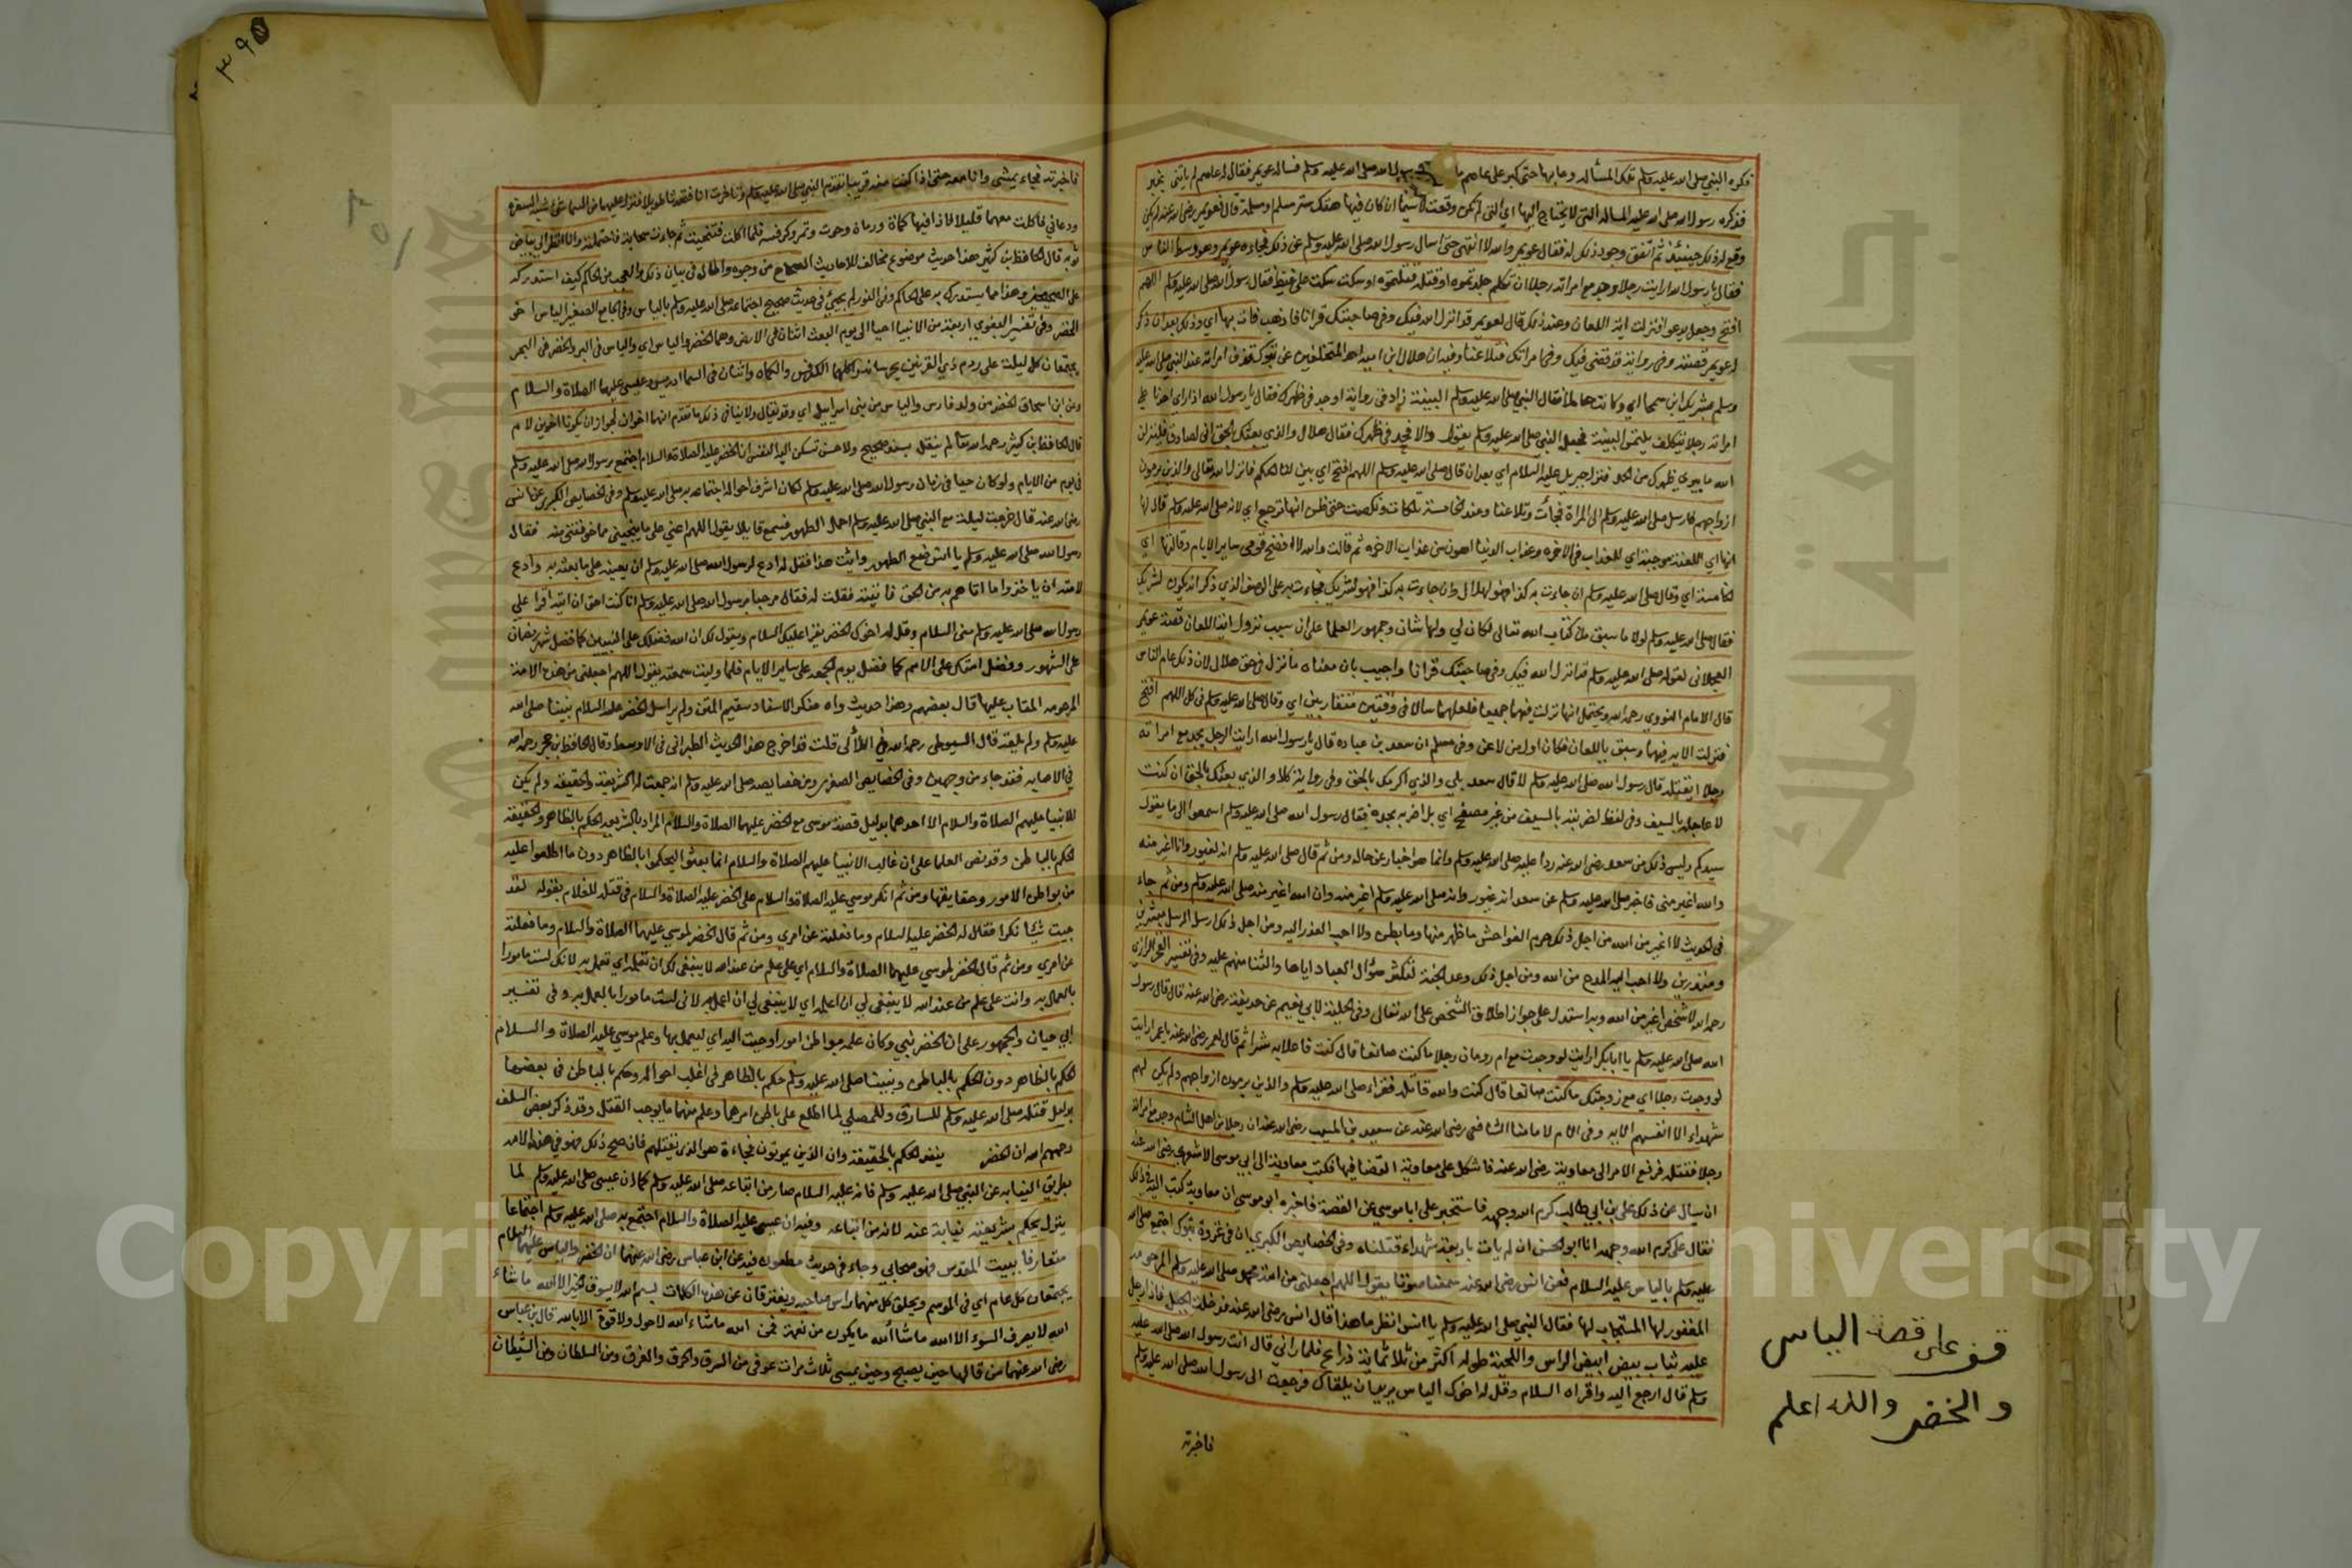 فكره النبي صلى الله عليه وسلم تلك المسألة وعابها حتى كبر على عاصم ما رسول الله صلى الله عليه وسلم فساله عويمر فقال له عاصم لم ياتني بخير
فذكره رسول الله صلى الله عليه المسالة التي لا يحتاج اليها اي التي لم تكن وقعت لاسيما ان كان فيها هتك ستر مسلم ومسلمة قال فعويمر رضي الله عنه لم يكن
وقع له ذلك حينئذ ثم اتفق وجود ذلك له فقال عويمر والله لا انتهى حتى اسال رسول الله صلى الله عليه وسلم عن ذلك فجاءه عويمر وهو وسط الناس
فقال يا رسول الله ارايت رجلا وجد مع امراته رجلا ان تكلم جلدتموه او قتل قتلتموه او سكت سكت على غيظ فقال رسول الله صلى الله عليه وسلم اللهم
افتح وجعل يدعو فنزلت اية اللعان وعند ذلك قال لعويمر قد انزل الله فيك وفي صاحبتك قرانا فاذهب فات بها اي وذلك بعد ان ذكر
له عويمر قصته وفي رواية قد قضي فيك وفي امراتك فتلاعنا وفيه ان هلال ابن امية احد المتخلفين عن تبوك قذف امراته عند النبي صلى الله عليه
وسلم بشريك ابن سحما اي وكانت حاملا فقال النبي صلى الله عليه وسلم البينة زاد في رواية او حد في ظهرك فقال يا رسول الله اذا راي احدنا على
امراته رجلا ينطلق يلتمس البينة فجعل النبي صلى الله عليه وسلم يقول والا فحد في ظهرك فقال هلال والذي بعثك بالحق اني لصادق فلينزلن
الله ما يبري ظهري من الحد فنزل جبريل عليه السلام اي بعد ان قال صلى الله عليه وسلم اللهم افتح اي بين لنا الحكم فانزل الله تعالى والذين يرمون
ازواجهم فارسل صلى الله عليه وسلم الى المراة فجأت وتلاعنا وعند الخامسة تلكات ونكصت حتى ظن انها ترجع اي لانه صلى الله عليه وسلم قال لها
انها اي اللعنة موجبة اي للعذاب في الاخرة وعذاب الدنيا اهون من عذاب الاخره ثم قالت والله لا افضح قومي ساير الايام وقالتها اي
الخامسة اي وقال صلى الله عليه وسلم ان جاءت به كذا فهو لهلال وان جاءت به كذا فهو لشريك فجاءت به على الوصف الذي ذكر انه يكون لشريك
فقال صلى الله عليه وسلم لولا ما سبق من كتاب الله تعالى لكان لي ولها شان وجمهور العلما على ان سبب نزول اية اللعان قصة عويمر
العجلاني لقوله صلى الله عليه وسلم قد انزل الله فيك وفي صاحبتك قرانا واجيب بان معناه ما نزل في حق هلال لان ذلك عام للناس
قال الامام النووي رحمه الله ويحتمل انها نزلت فيهما جميعا فلعلهما سالا في وقتين متقاربين اي وقال صلى الله عليه وسلم في كل اللهم افتح
فنزلت الاية فيهما وسبق باللعان فكان اول من لاعن وفي مسلم ان سعد بن عباده قال يا رسول الله ارايت الرجل يجد مع امراته
رجلا ايقتله قال رسول الله صلى الله عليه وسلم لا قال سعد بلي والذي اكرمك بالحق وفي رواية كلا والذي بعثك بالحق ان كنت
لا عاجله بالسيف وفي لفظ لضربته بالسيف من غير مصفح اي بل اضربه بحده فقال رسول الله صلى الله عليه وسلم اسمعوا الى ما يقول
سيدكم وليس ذلك من سعد رضي الله عنه ردا عليه صلى الله عليه وسلم وانما هو اخبار عن حاله ومن ثم قال صلى الله عليه وسلم انه لغيور وانا اغير منه
والله اغير مني فاخبر صلى الله عليه وسلم عن سعد انه غيور وانه صلى الله عليه وسلم اغير منه وان الله اغير منه صلى الله عليه وسلم ومن ثم جاء
في الحديث لا اغير من الله من اجل ذلك حرم الفواحش ما ظهر منها وما بطن ولا احب العذر اليه ومن اجل ذلك ارسل الرسل مبشرين
ومنذرين ولا احب اليه المدح من الله ومن اجل ذلك وعد الجنة لتكثر سؤال العباد اياها والثنا منهم عليه وفي تفسير الفخر الرازي
رحمه الله لا شخص اغير من الله وبه استدل على جواز اطلاق الشخص على الله تعالى وفي الحلية لابي نعيم عن حذيفة رضي الله عنه قال قال رسول
الله صلى الله عليه وسلم يا ابابكر ارايت لو وجدت مع ام رومان رجلا ما كنت صانعا قال كنت فاعلا به شرا ثم قال لعمر رضي الله عنه يا عمر ارايت
لو وجدت رجلا اي مع زوجتك ما كنت صانعا قال كنت والله قاتله فقراء صلى الله عليه وسلم والذين يرمون ازواجهم ولم يكن لهم
شهداء الا انفسهم الاية وفي الام لامامنا الشافعي رضي الله عنه عن سعيد بن المسيب رضي الله عنه ان رجلا من اهل الشام وجد مع امراته
رجلا فقتله فرفع الامر الى معاوية رضي الله عنه فاشكل على معاوية القضا فيها فكتب معاوية الى ابي موسى الاشعري رضي الله عنه
ان سيال عن ذلك علي بن ابي طالب كرم الله وجهه فاستخبر على ابا موسي عن القصة فاخبره ابو موسي ان معاوية كتب اليه في ذلك
فقال علي كرم الله وجهه انا ابو الحسن ان لم يات باربعة شهداء قتلناه وفي الخصايص الكبري ان في غزوة تبوك اجتمع صلى الله
عليه وسلم بالياس عليه السلام فعن انس رضي الله عنه سمعنا صوتا يقول اللهم اجعلني من امة محمد صلى الله عليه وسلم المرحومه
المغفور لها المستجاب لها فقال النبي صلى الله عليه وسلم يا انس انظر ما هذا قال انس رضي الله عنه فدخلت الجبل فاذا رجل
عليه ثياب بيض ابيض الراس واللحية طوله اكثر من ثلاثمائة ذراع فلما راني قال انت رسول الله صلى الله عليه
وسلم قال ارجع اليه واقراه السلام وقل له اخوك الياس يريد ان يلقاك فرجعت الى رسول الله صلى الله عليه وسلم
فاخبرته
قف على قصة الياس
والخضر والله اعلم
٣٩٥
فاخبرته فجاء يمشي وانا معه حتى اذا كنت منه قريبا تقدم النبي صلى الله عليه وسلم وتاخرت انا فتحدثا طويلا فنزل عليهما من السما شئ شبه السفرة
ودعاني فاكلت معهما قليلا فاذا فيها كماة ورمان وحوت وتمر وكرفس فلما اكلت فتنحيت ثم جاءت سحابة فاحتملته وانا انظر الى بياض
ثوبه قال الحافظ بن كثير هذا حديث موضوع مخالف للاحاديث الصحاح من وجوه واطال في بيان ذلك والعجب من الحاكم كيف استدركه
على الصحيحين وهذا مما يستدرك به على الحاكم وفي النور لم يجئ في حديث صحيح اجتماعه صلى الله عليه وسلم بالياس وفي الجامع الصغير الياس اخو
الخضر وفي تفسير البغوي اربعة من الانبيا احيا الى يوم البعث اثنان في الارض وهما الخضر والياس اي والياس في البر والخضر في البحر
يجتمعان كل ليلة على ردم ذي القرنين يحرسانه واكلهما الكرفس والكماه واثنان في السما ادريس وعيسي عليهما الصلاة والسلام
وعن ابن اسحاق الخضر من ولد فارس والياس من بني اسراييل اي وقد يقال ولا ينافي ذلك ما تقدم انهما اخوان لجواز ان يكونا اخوين لام
قال الحافظ ابن كثير رحمه الله تعالى لم ينقل بسند صحيح ولا حسن تسكن اليه النفس ان الخضر عليه الصلاة والسلام اجتمع برسول الله صلى الله عليه وسلم
في يوم من الايام ولو كان حيا في زمان رسول الله صلى الله عليه وسلم لكان اشرف احواله اجتماعه به صلى الله عليه وسلم وفي الخصايص الكبرى عن انس
رضي الله عنه قال خرجت ليلة مع النبي صلى الله عليه وسلم احمل الطهور فسمع قايلا يقول اللهم اعني على ما ينجيني مما خوفتني منه فقال
رسول الله صلى الله عليه وسلم يا انس ضع الطهور وايت هذا فقل له ادع لرسول الله صلى الله عليه وسلم ان يعينه على ما بعثه به وادع
لامته ان ياخذوا ما اتاهم به من الحق فاتيته فقلت له فقال مرحبا برسول الله صلى الله عليه وسلم انا كنت احق ان اتيه اقرا على
رسول الله صلى الله عليه وسلم مني السلام وقل له اخوك الخضر يقرا عليك السلام ويقول لك ان الله فضلك على النبيين كما فضل شهر رمضان
على الشهور وفضل امتك على الامم كما فضل يوم الجمعة على ساير الايام فلما وليت سمعته يقول اللهم اجعلني من هذه الامة
المرحومه المتاب عليها قال بعضهم وهذا حديث واه منكر الاسناد سقيم المتن ولم يراسل الخضر عليه السلام نبينا صلى الله
عليه وسلم ولم يلقه قال السيوطي رحمه الله في اللآلى قلت قد اخرج هذا الحديث الطبراني في الاوسط وقال الحافظ بن حجر رحمه الله
في الاصابه فقد جاء من وجهين وفي الخصايص الصغرى ومن خصايصه صلى الله عليه وسلم انه جمعت له الشريعة والحقيقة ولم يكن
للانبيا عليهم الصلاة والسلام الا احدهما بدليل قصة موسى مع الخضر عليهما الصلاة والسلام المراد بالشريعة الحكم بالظاهر وبالحقيقة
الحكم بالباطن وقد نص العلما على ان غالب الانبيا عليهم الصلاة والسلام انما بعثوا ليحكموا بالظاهر دون ما اطلعوا عليه
من بواطن الامور وحقايقها ومن ثم انكر موسي عليه الصلاة والسلام على الخضر عليه الصلاة والسلام في قتله للغلام بقوله لقد
جيت شيا نكرا فقال له الخضر عليه السلام وما فعلته عن امري ومن ثم قال الخضر لموسي عليهما الصلاة والسلام وما فعلته
عن امري ومن ثم قال الخضر لموسي عليهما الصلاة والسلام اي على علم من عند الله لا ينبغي لك ان تعلمه اي تعمل به لانك لست مامورا
بالعمل به وانت على علم من عند الله لا ينبغي لي ان اعلمه اي لا ينبغي لي ان اعمل به لاني لست مامورا بالعمل به وفي تفسير
ابي حيان والجمهور على ان الخضر نبي وكان علمه بواطن امور اوحيت اليه اي ليعمل بها وعلم موسي عليه الصلاة والسلام
الحكم بالظاهر دون الحكم بالباطن ونبينا صلى الله عليه وسلم حكم بالظاهر في اغلب احواله وحكم بالباطن في بعضها
بدليل قتله صلى الله عليه وسلم للسارق وللمصلي لما اطلع على باطن امرهما وعلم منهما ما يوجب القتل وقد ذكر بعض السلف
رحمهم الله ان الخضر ينفذ الحكم بالحقيقة وان الذين يموتون فجاءة هو الذي يقتلهم فان صح ذلك فهو في هذه الامه
بطريق النيابه عن النبي صلى الله عليه وسلم فانه عليه السلام صار من اتباعه صلى الله عليه وسلم كما ان عيسى صلى الله عليه وسلم لما
ينزل يحكم بشريعته نيابة عنه لانه من اتباعه وفيه ان عيسى عليه الصلاة والسلام اجتمع به صلى الله عليه وسلم اجتماعا
متعارفا ببيت المقدس فهو صحابي وجاء في حديث مطعون فيه عن ابن عباس رضي الله عنهما ان الخضر والياس عليهما السلام
يجتمعان كل عام اي في الموسم ويحلق كل منهما راس صاحبه ويفترقان عن هذه الكلمات بسم الله لا يسوق الخير الا الله ما شاء
الله لا يصرف السوء الا الله ما شاء الله ما يكون من نعمة فمن الله ماشاء الله لا حول ولا قوة الا بالله قال بن عباس
رضي الله عنهما من قالها حين يصبح وحين يمسى ثلاث مرات عوفي من السرق والحرق والغرق ومن السلطان ومن الشيطان
جامعة الملك سعود
Copyright © King Saud University